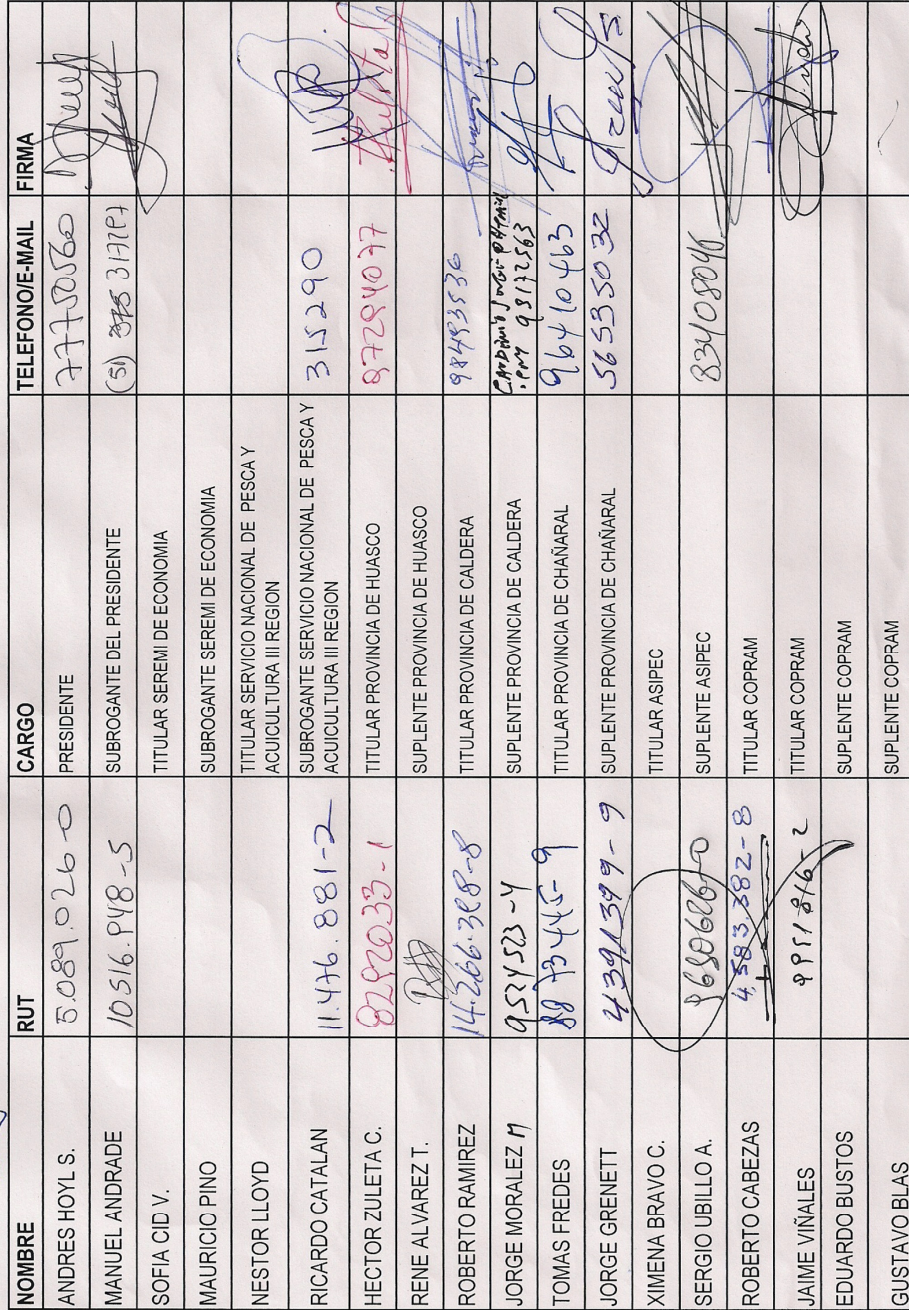 NOMBRE RUT CARGO TELEFONO/E-MAIL FIRMA
ANDRES HOYL S. 5.089.026-0 PRESIDENTE 77750560
MANUEL ANDRADE 10516.948-5 SUBROGANTE DEL PRESIDENTE (51)
SOFIA CID V. TITULAR SEREMI DE ECONOMIA
MAURICIO PINO SUBROGANTE SEREMI DE ECONOMIA
NESTOR LLOYD TITULAR SERVICIO NACIONAL DE PESCA Y
ACUICULTURA III REGION
RICARDO CATALAN 11.476.881-2 SUBROGANTE SERVICIO NACIONAL DE PESCA Y 315290
ACUICULTURA III REGION
HECTOR ZULETA C. 8292033-1 TITULAR PROVINCIA DE HUASCO 87284077
RENE ALVAREZ T. SUPLENTE PROVINCIA DE HUASCO
ROBERTO RAMIREZ 14.266.388-8 TITULAR PROVINCIA DE CALDERA 98493536
JORGE MORALEZ M 9524523-4 SUPLENTE PROVINCIA DE CALDERA 93172563
TOMAS FREDES 8873445-9 TITULAR PROVINCIA DE CHAÑARAL 96410463
JORGE GRENETT 4391399-9 SUPLENTE PROVINCIA DE CHAÑARAL 56535032
XIMENA BRAVO C. TITULAR ASIPEC
SERGIO UBILLO A. SUPLENTE ASIPEC 83408046
ROBERTO CABEZAS 4,583,382-8 TITULAR COPRAM
JAIME VIÑALES TITULAR COPRAM
EDUARDO BUSTOS SUPLENTE COPRAM
GUSTAVO BLAS SUPLENTE COPRAM